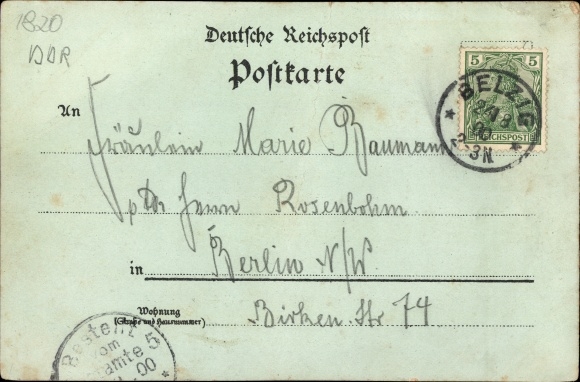 1820
DDR
Deutsche Reichspost
Postkarte
5 5
REICHSPOST
BELZIG
2-3N
An
Fräulein Marie Baumann
Herrn Rosenbohm
in Berlin N/W
Wohnung
(Straße und Hausnummer)
Birken Str 74
Bestellt
vom
Postamte 5
00